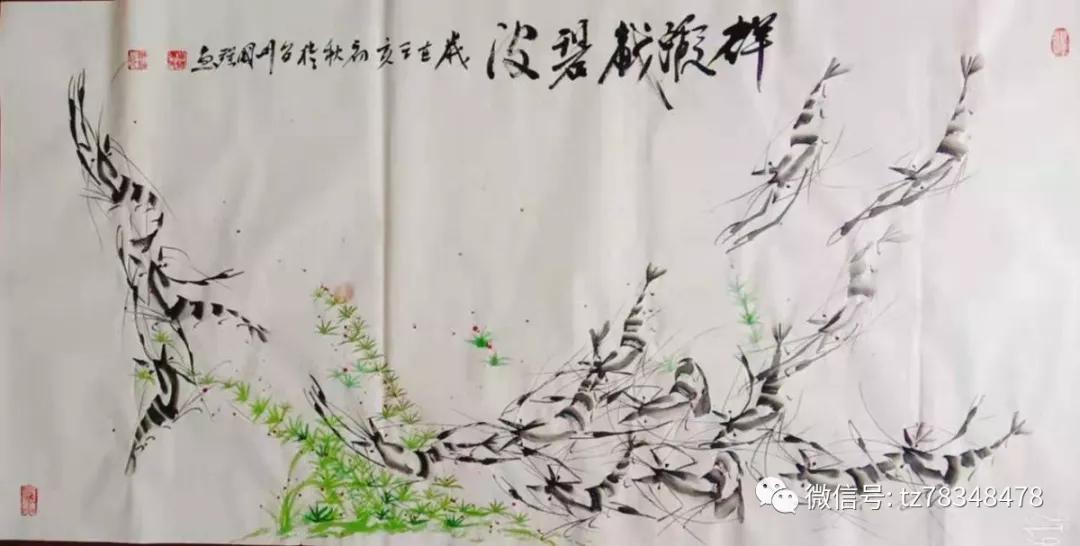 群虾戏碧波
岁在己亥初秋於台州国瑞画
微信号: tz78348478